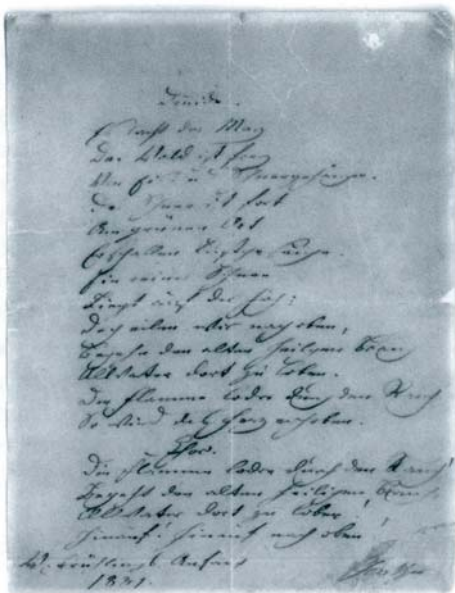 Druide.
Es lacht der May
Der Wald ist frey
Von Eis und
Der Schnee ist fort
Am grünen Ort
Erschallen Lustgesänge.
Ein reiner Schnee
Liegt auf der Höh;
Doch eilen wir nach oben,
Begehn den alten heilgen Brauch
Allvater dort zu loben.
Die Flamme lodre durch den Rauch
So wird das Herz erhoben.
Chor.
Die Flamme lodre durch den Rauch!
Begeht den alten heilgen Brauch,
Allvater dort zu loben!
Hinauf! hinauf nach oben!
W. Frühlings Anfang
1831.